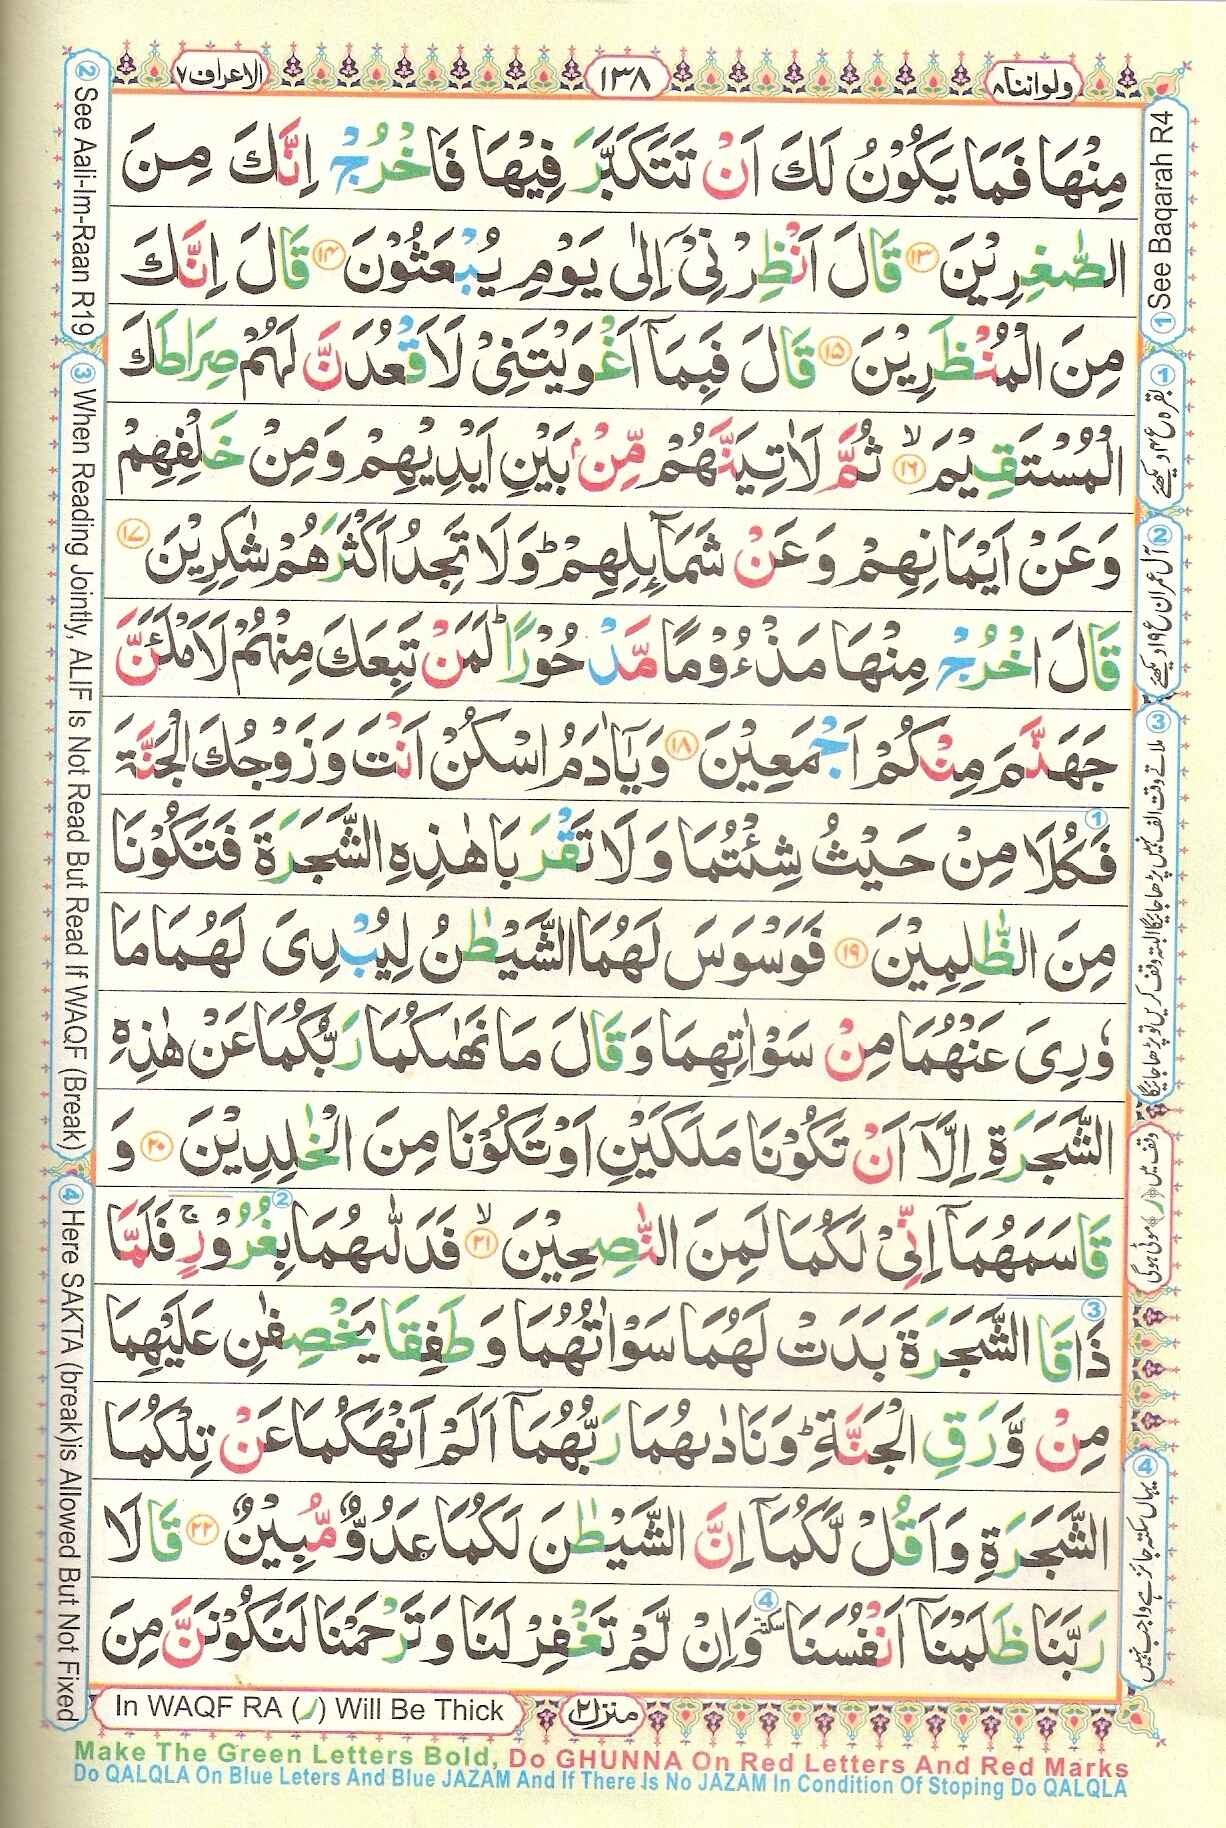 ولواننا۸
۱۳۸
الاعراف۷
مِنْهَا فَمَا يَكُوْنُ لَكَ اَنْ تَتَكَبَّرَ فِيْهَا فَاخْرُجْ اِنَّكَ مِنَ
الصّٰغِرِيْنَ ۱۳ قَالَ اَنْظِرْنِيْۤ اِلٰى يَوْمِ يُبْعَثُوْنَ ۱۴ قَالَ اِنَّكَ
مِنَ الْمُنْظَرِيْنَ ۱۵ قَالَ فَبِمَاۤ اَغْوَيْتَنِيْ لَاَقْعُدَنَّ لَهُمْ صِرَاطَكَ
الْمُسْتَقِيْمَ ۙ۱۶ ثُمَّ لَاٰتِيَنَّهُمْ مِّنْۢ بَيْنِ اَيْدِيْهِمْ وَمِنْ خَلْفِهِمْ
وَعَنْ اَيْمَانِهِمْ وَعَنْ شَمَآئِلِهِمْ ؕ وَلَا تَجِدُ اَكْثَرَهُمْ شٰكِرِيْنَ ۱۷
قَالَ اخْرُجْ مِنْهَا مَذْءُوْمًا مَّدْحُوْرًا ؕ لَمَنْ تَبِعَكَ مِنْهُمْ لَاَمْلَـَٔنَّ
جَهَنَّمَ مِنْكُمْ اَجْمَعِيْنَ ۱۸ وَيٰۤاٰدَمُ اسْكُنْ اَنْتَ وَزَوْجُكَ الْجَنَّةَ
فَكُلَا مِنْ حَيْثُ شِئْتُمَا وَلَا تَقْرَبَا هٰذِهِ الشَّجَرَةَ فَتَكُوْنَا
مِنَ الظّٰلِمِيْنَ ۱۹ فَوَسْوَسَ لَهُمَا الشَّيْطٰنُ لِيُبْدِيَ لَهُمَا مَا
وٗرِيَ عَنْهُمَا مِنْ سَوْاٰتِهِمَا وَقَالَ مَا نَهٰىكُمَا رَبُّكُمَا عَنْ هٰذِهِ
الشَّجَرَةِ اِلَّاۤ اَنْ تَكُوْنَا مَلَكَيْنِ اَوْ تَكُوْنَا مِنَ الْخٰلِدِيْنَ ۲۰ وَ
قَاسَمَهُمَاۤ اِنِّيْ لَكُمَا لَمِنَ النّٰصِحِيْنَ ۙ۲۱ فَدَلّٰىهُمَا بِغُرُوْرٍ ۚ فَلَمَّا
ذَاقَا الشَّجَرَةَ بَدَتْ لَهُمَا سَوْاٰتُهُمَا وَطَفِقَا يَخْصِفٰنِ عَلَيْهِمَا
مِنْ وَّرَقِ الْجَنَّةِ ؕ وَنَادٰىهُمَا رَبُّهُمَاۤ اَلَمْ اَنْهَكُمَا عَنْ تِلْكُمَا
الشَّجَرَةِ وَاَقُلْ لَّكُمَاۤ اِنَّ الشَّيْطٰنَ لَكُمَا عَدُوٌّ مُّبِيْنٌ ۲۲ قَالَا
رَبَّنَا ظَلَمْنَاۤ اَنْفُسَنَا سكتة وَاِنْ لَّمْ تَغْفِرْ لَنَا وَتَرْحَمْنَا لَنَكُوْنَنَّ مِنَ
① See Baqarah R4
① بقرہ ع۴ دیکھئے
② آل عمران ع۱۹ دیکھئے
③ ملاتے وقت الف نہیں پڑھا جائیگا البتہ وقف کریں تو پڑھا جائیگا
وقف میں (ر) موٹی ہوگی
④ یہاں سکتہ جائز ہے واجب نہیں
② See Aali-Im-Raan R19
③ When Reading Jointly, ALIF Is Not Read But Read If WAQF (Break)
④ Here SAKTA (break)is Allowed But Not Fixed
In WAQF RA (ر) Will Be Thick
منزل۲
Make The Green Letters Bold, Do GHUNNA On Red Letters And Red Marks
Do QALQLA On Blue Leters And Blue JAZAM And If There Is No JAZAM In Condition Of Stoping Do QALQLA